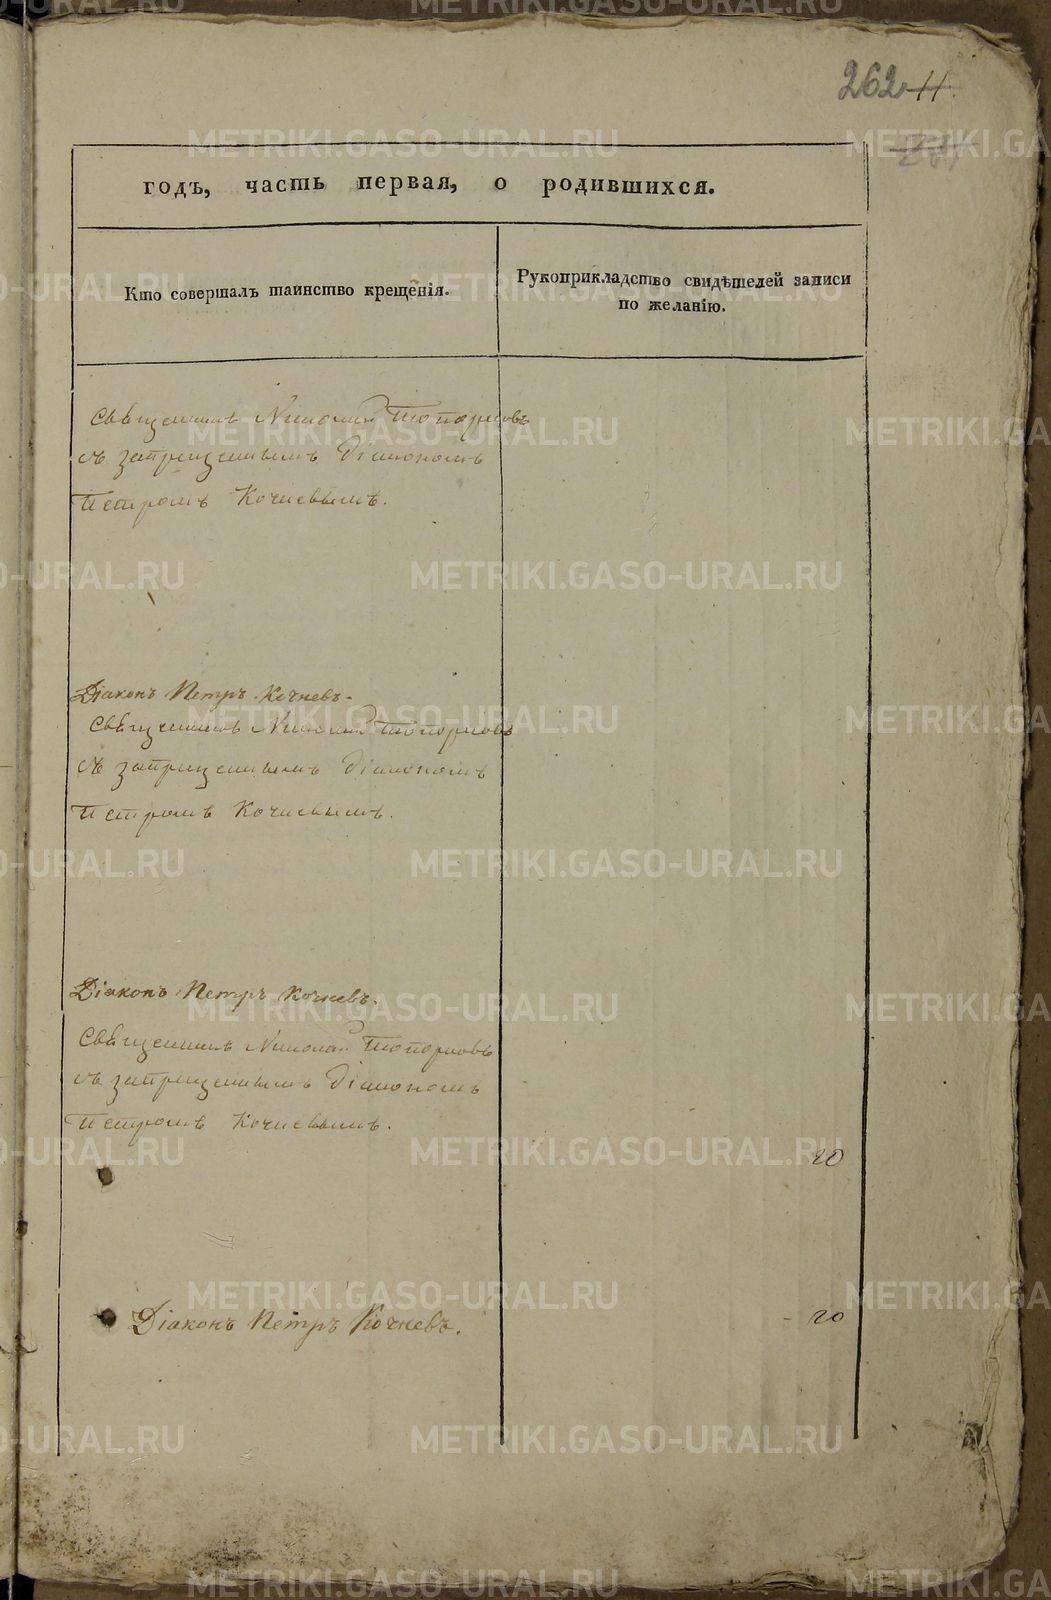 262 11
годъ, часть первая, о родившихся.
Кто совершалъ таинство крещенія.
Рукоприкладство свидѣтелей записи
по желанію.
Священникъ Николай Топорковъ
съ запрещеннымъ Діакономъ
Петромъ Кочневымъ.
Діаконъ Петръ Кочневъ.
Священникъ Николай Топорковъ
съ запрещеннымъ Діакономъ
Петромъ Кочневымъ.
Діаконъ Петръ Кочневъ.
Священникъ Николай Топорковъ
съ запрещеннымъ Діакономъ
Петромъ Кочневымъ.
20
Діаконъ Петръ Кочневъ.
20
METRIKI.GASO-URAL.RU